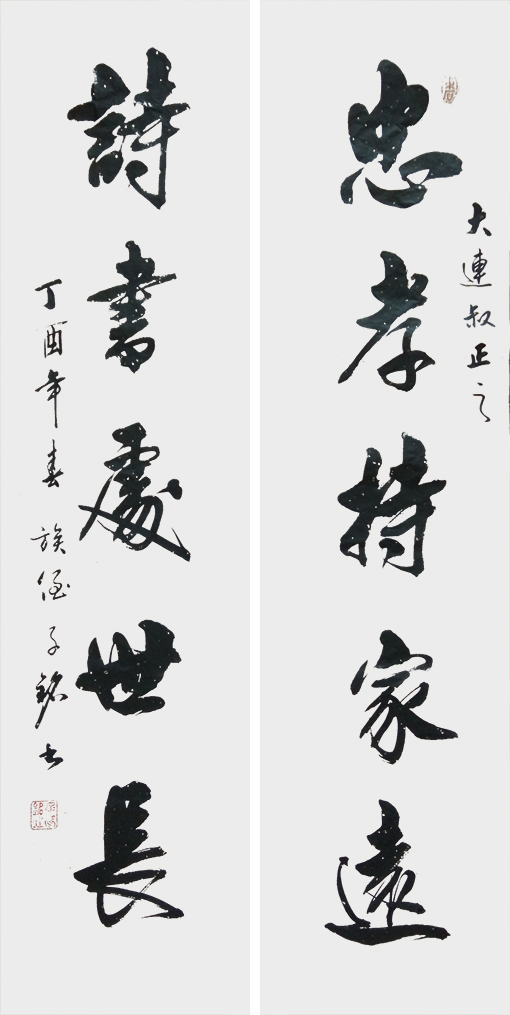 忠孝持家遠
大連叔正之
詩書處世長
丁酉年春 族侄子銘書